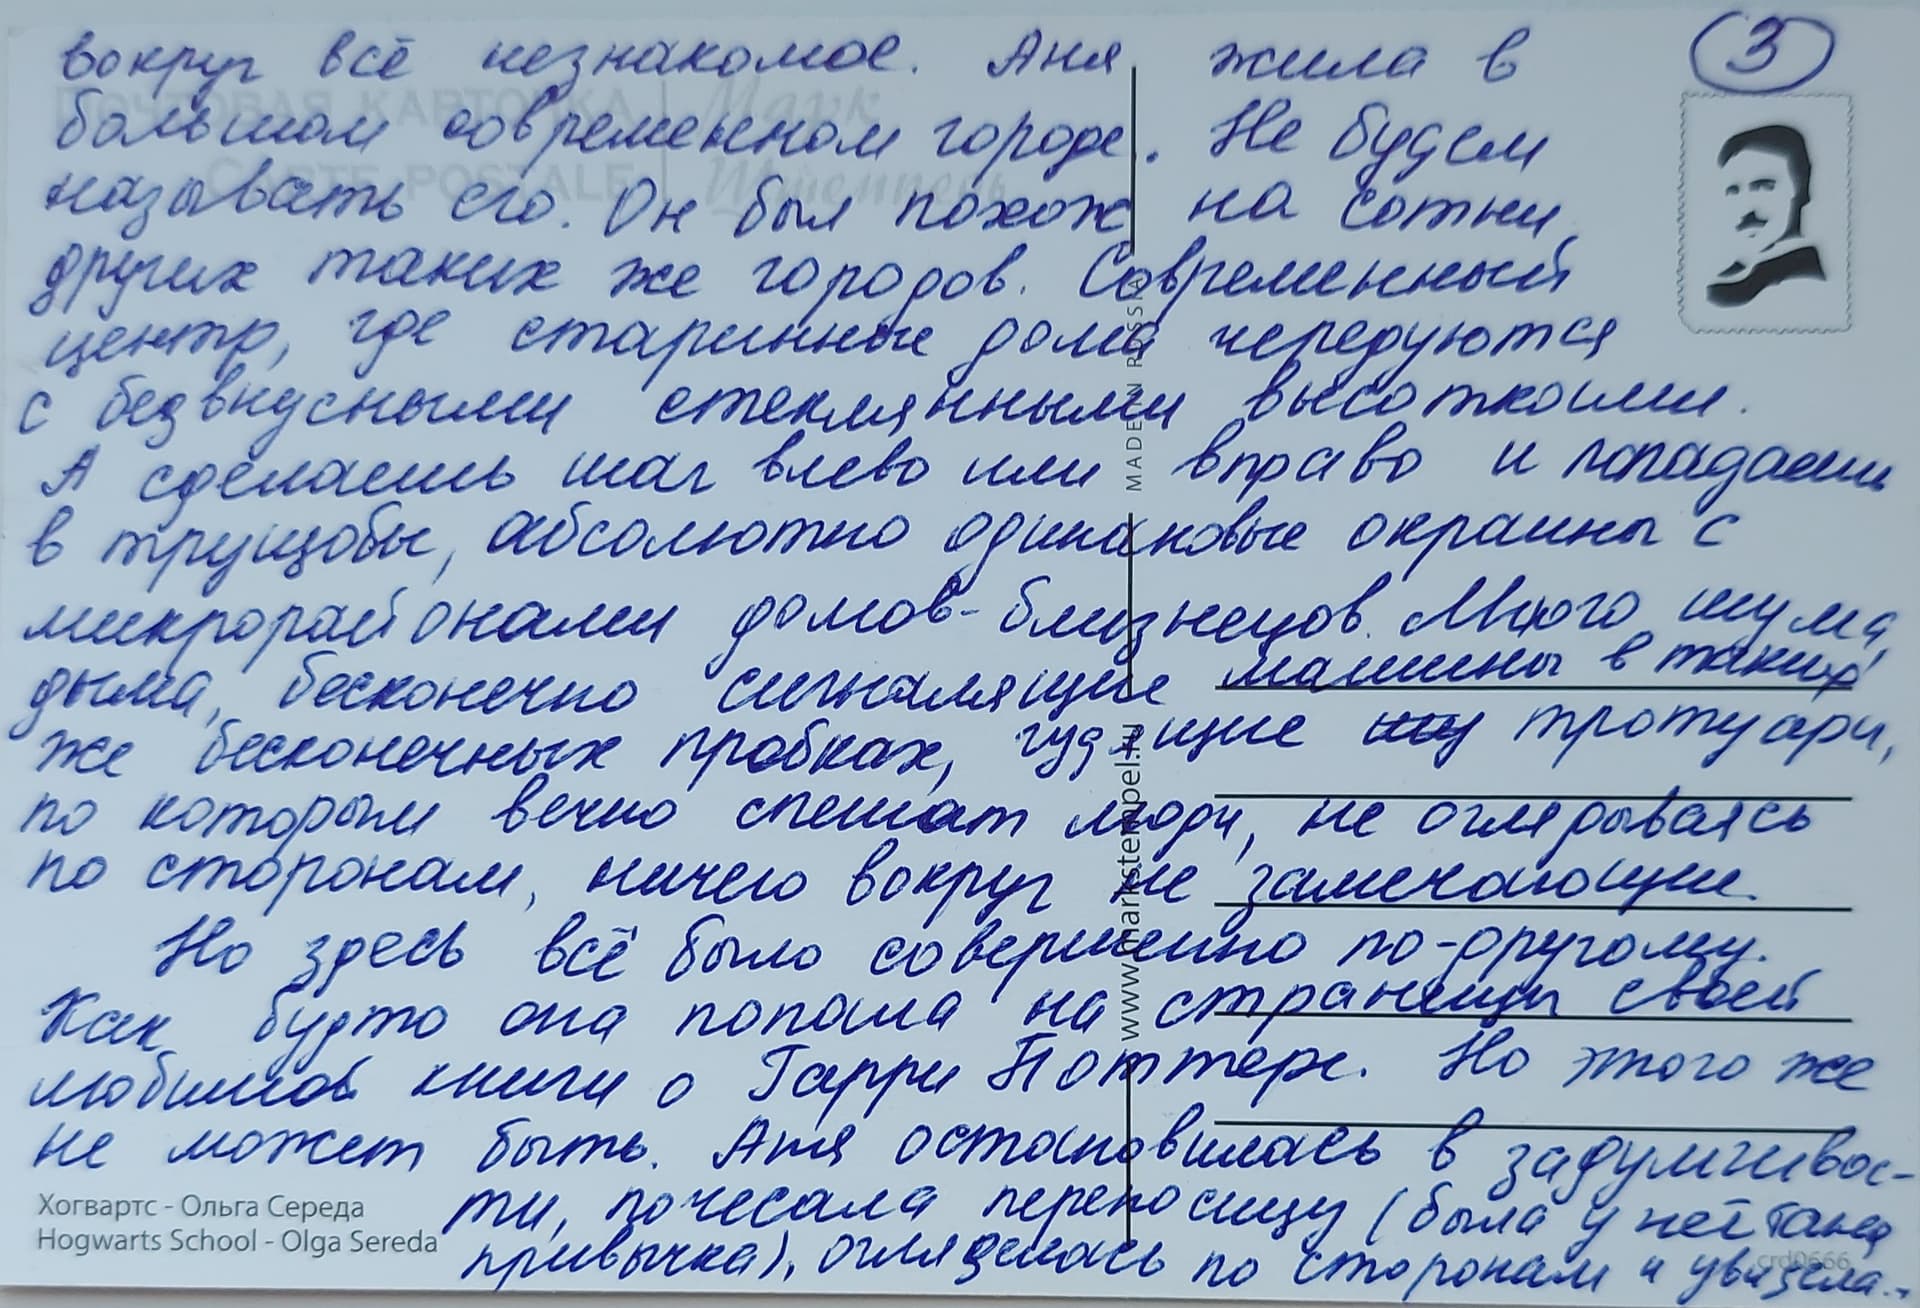 3
вокруг всё незнакомое. Аня жила в
большом современном городе. Не будем
называть его. Он был похож на сотни
других таких же городов. Современный
центр, где старинные дома чередуются
с безвкусными стеклянными высотками.
А сделаешь шаг влево или вправо и попадаешь
в трущобы, абсолютно одинаковые окраины с
микрорайонами домов-близнецов. Много шума,
дыма, бесконечно сигналящие машины в таких
же бесконечных пробках, гудящие тротуары,
по которым вечно спешат люди, не оглядываясь
по сторонам, ничего вокруг не замечающие.
Но здесь всё было совершенно по-другому.
Как будто она попала на страницы своей
любимой книги о Гарри Поттере. Но этого же
не может быть. Аня остановилась в задумчивос-
ти, почесала переносицу (была у неё такая
привычка), огляделась по сторонам и увидела...
Хогвартс - Ольга Середа
Hogwarts School - Olga Sereda
crd0666
www.markstempel.ru
MADE IN RUSSIA
ПОЧТОВАЯ КАРТОЧКА
CARTE POSTALE
Марк
Штемпель